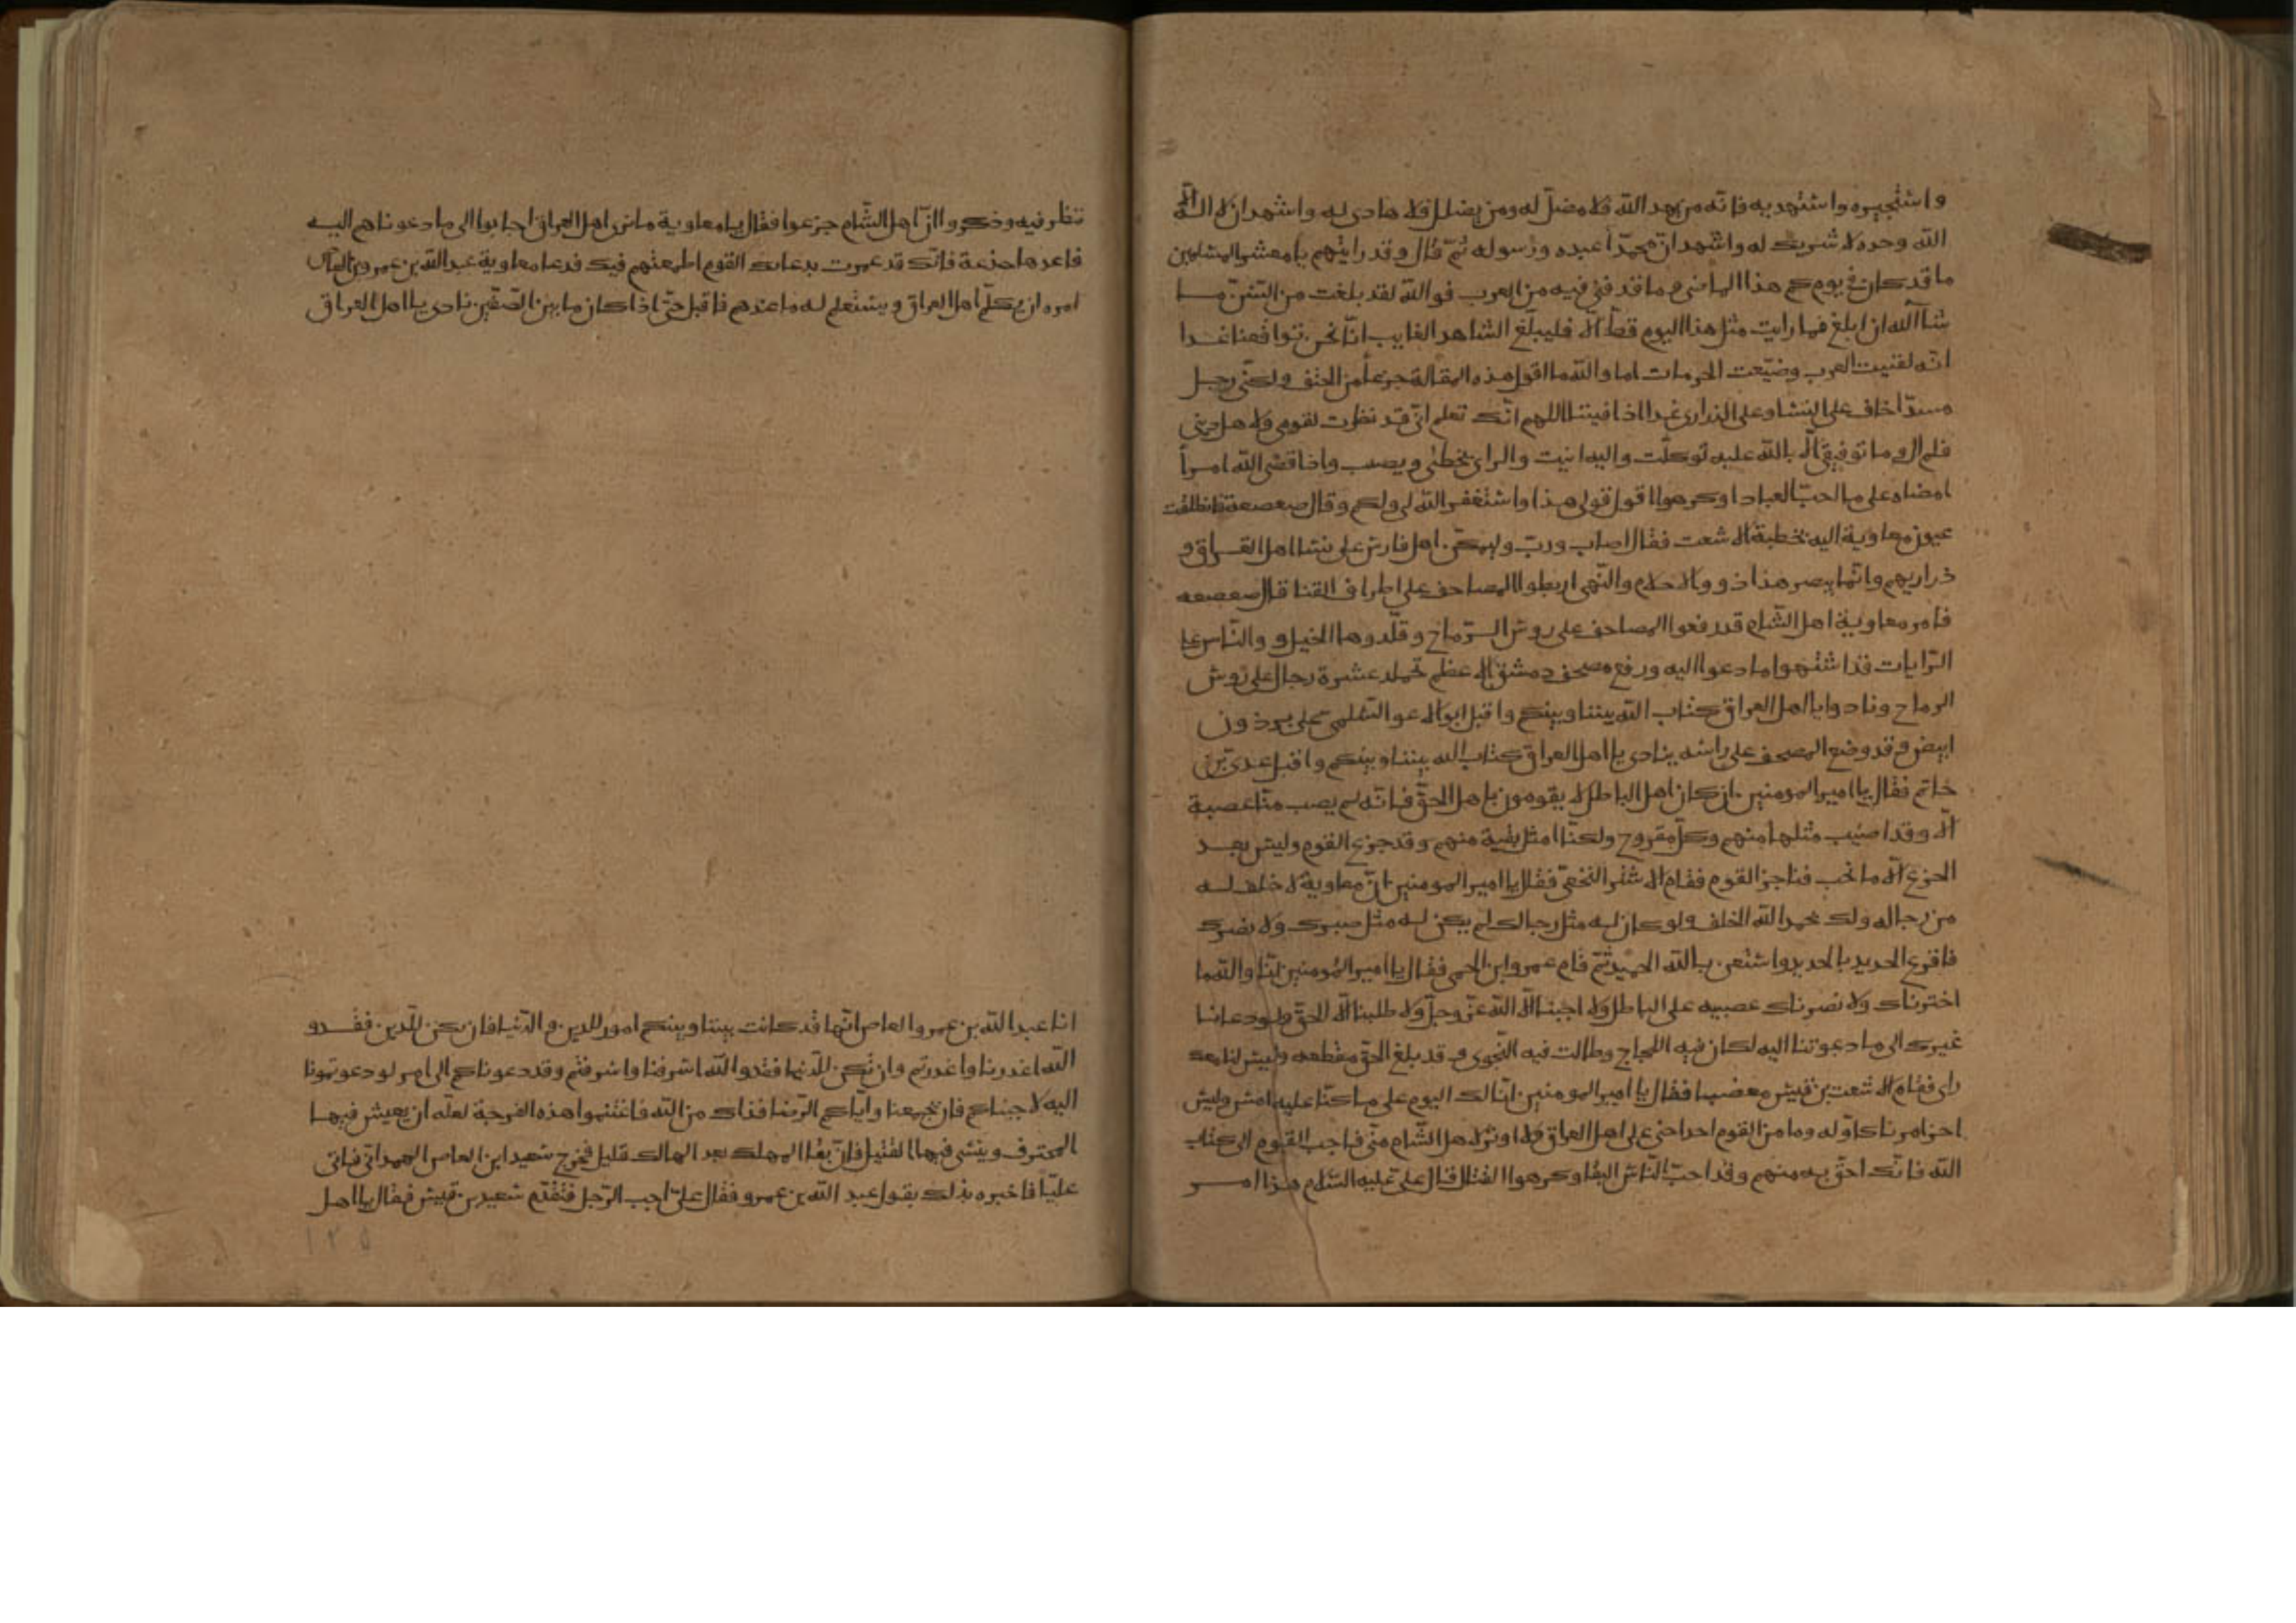 واستجيره واستهديه فانه من يهد الله فلا مضل له ومن يضلل فلا هادى له واشهد ان لا اله الا
الله وحده لا شريك له واشهد ان محمدا عبده ورسوله ثم قال وقد رايتم يا معشر المسلمين
ما قد كان فى يومكم هذا الماضى وما قد فنى فيه من العرب فوالله لقد بلغت من السن ما
شا الله ان ابلغ فما رايت مثل هذا اليوم قط الا فليبلغ الشاهد الغايب انا نحن توافقنا غدا
انه لفنيت العرب وضيعت الحرمات اما والله ما اقول هذه المقالة جزعا من الحتف ولكنى رجل
مسن اخاف على النسا وعلى الذرارى غدا اذا فنينا اللهم انك تعلم انى قد نظرت لقومى ولاهل دينى
فلم ال وما توفيقى الا بالله عليه توكلت واليه انيب والراى يخطئ ويصيب واذا قضى الله امرا
امضاه على ما احب العباد او كرهوا اقول قولى هذا واستغفر الله لى ولكم وقال صعصعة فانطلقت
عيون معاوية اليه بخطبة الاشعث فقال اصاب ورب اهل فارس على نسا اهل العراق و
ذراريهم وانما يبصر هذا ذوو الاحلام والنهى اربطوا المصاحف على اطراف القنا قال صعصعه
فامر معاوية اهل الشام قد رفعوا المصاحف على روس الرماح وقلدوها الخيل والناس على
الرايات قد اشتهوا ما دعوا اليه ورفع مصحف دمشق الاعظم تحمله عشرة رجال على روس
الرماح ونادوا يا اهل العراق كتاب الله بيننا وبينكم واقبل ابو الاعور السلمى على برذون
ابيض وقد وضع المصحف على راسه ينادى يا اهل العراق كتاب الله بيننا وبينكم واقبل عدى بن
حاتم فقال يا امير المومنين ان كان اهل الباطل لا يقومون باهل الحق فانه لم يصب منا عصبة
الا وقد اصيب مثلها منهم وكل مقروح ولكنا امثل بقية منهم وقد جزع القوم وليس بعد
الجزع الا ما تحب فناجز القوم فقام الاشتر النخعى فقال يا امير المومنين ان معاوية لا خلف له
من رجاله ولك بحمد الله الخلف ولو كان له مثل رجالك لم يكن له مثل صبرك ولا نصرك
فاقرع الحديد بالحديد واستعن بالله الحميد ثم قام عمرو ابن الحمق فقال يا امير المومنين انا والله ما
اخترناك ولا نصرناك عصبيه على الباطل ولا اجبنا الا الله عز وجل ولا طلبنا الا الحق ولو دعانا
غيرك الى ما دعوتنا اليه لكان فيه اللجاج وطالت فيه النجوى وقد بلغ الحق مقطعه وليس لنا معك
راى فقام الاشعث بن قيس مغضبا فقال يا امير المومنين انا لك اليوم على ما كنا عليه امس وليس
اخر امرنا كاوله وما من القوم احد احنى على اهل العراق ولا اوتر لاهل الشام منى فاجب القوم الى كتاب
الله فانك احق به منهم وقد احب الناس البقا وكرهوا القتال قال على عليه السلام هذا امر
ننظر فيه وذكروا ان اهل الشام جزعوا فقال يا معاوية ما نرى اهل العراق اجابوا الى ما دعوناهم اليه
فاعدها جذعة فانك قد غمرت بدعايك القوم اطمعتهم فيك فدعا معاوية عبد الله بن عمرو بن العاص
امره ان يكلم اهل العراق ويستعلم له ما عندهم فاقبل حتى اذا كان ما بين الصفين نادى يا اهل العراق
انا عبد الله بن عمرو العاص انها قد كانت بيننا وبينكم امور للدين والدنيا فان يكن للدين فقد و
الله اعذرنا واعذرتم وان تكن للدنيا فقد والله اسرفنا واسرفتم وقد دعوناكم الى امر لو دعوتمونا
اليه لاجبناكم فان يجمعنا واياكم الرضا فذاك من الله فاغتنموا هذه الفرجة لعله ان يعيش فيها
المحترف وينسى فيها القتيل فان بقا المهلك بعد الهالك قليل فخرج سعيد ابن العاص الهمدانى فاتى
عليا فاخبره بذلك بقول عبد الله بن عمرو فقال على اجب الرجل فتقدم سعيد بن قيس فقال يا اهل
١٢٥